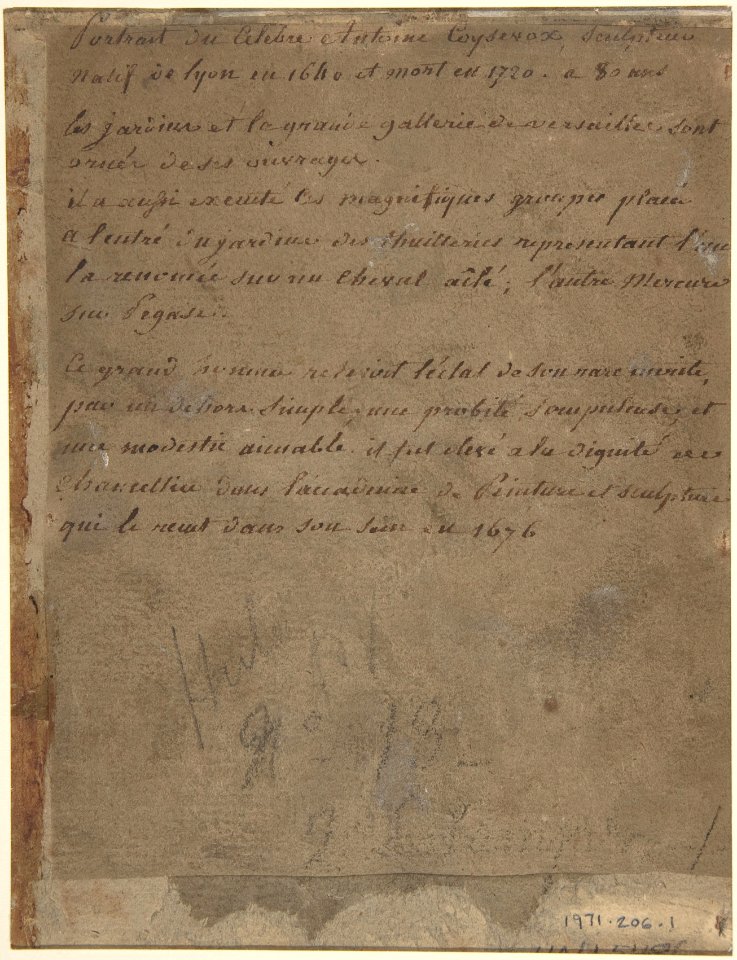 Portrait du Celebre Antoine Coysevox, sculpteur
Natif de Lyon en 1640 et mort en 1720. a 80 ans
les jardins et la grande gallerie de versailles sont
ornée de ses ouvrages.
il a aussi executé les magnifiques groupes placée
a l'entré du jardine des thuilleries representant l'une
la renomée sur un cheval aîlé; l'autre Mercure
sur Pegase.
Ce grand homme relevoit l'éclat de son rare merite,
par un dehors simple, une probité scrupuleuse, et
une modestie aimable. il fut elevé a la dignité de
Chancellier dans l'accademie de Peinture et sculpture
qui le recut dans son sein en 1676
1971.206.1